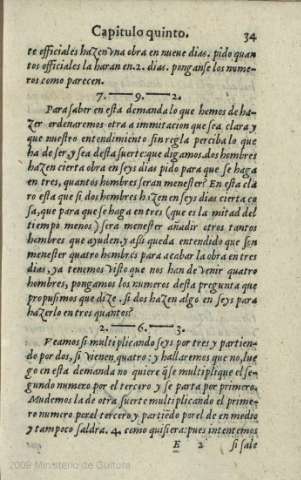 Capitulo quinto. 34
te officiales hazen vna obra en nueue dias. pido quan
tos officiales la haran en.2. dias. ponganse los nume-
ros como parecen.
7. — 9. — 2.
Para saber en esta demanda lo que hemos de ha-
zer ordenaremos otra a immitacion que sea clara y
que nuestro entendimiento sin regla perciba lo que
ha de ser, y sea desta suerte: que digamos. dos hombres
hazen cierta obra en seys dias pido para que se haga
en tres, quantos hombres seran menester? En esta cla
ro esta que si dos hombres hazen en seys dias cierta co
sa, que para que se haga en tres (que es la mitad del
tiempo menos) sera menester añadir otros tantos
hombres que ayuden, y assi queda entendido que son
menester quatro hombres para acabar la obra en tres
dias, ya tenemos visto que nos han de venir quatro
hombres, pongamos los numeros desta pregunta que
propusimos que dize. si dos hazen algo en seys para
hazerlo en tres quantos?
2. — 6. — 3.
Veamos si multiplicando seys por tres y partien-
do por dos, si vienen quatro: y hallaremos que no, lue
go en esta demanda no quiere q̃ se multiplique el se-
gundo numero por el tercero y se parta por primero.
Mudemos la de otra suerte multiplicando el prime-
ro numero por el tercero, y partiẽdo por el de en medio
y tampoco saldra. 4. como quisiera: pues intentemos
E 2 si sale
2009 Ministerio de Cultura